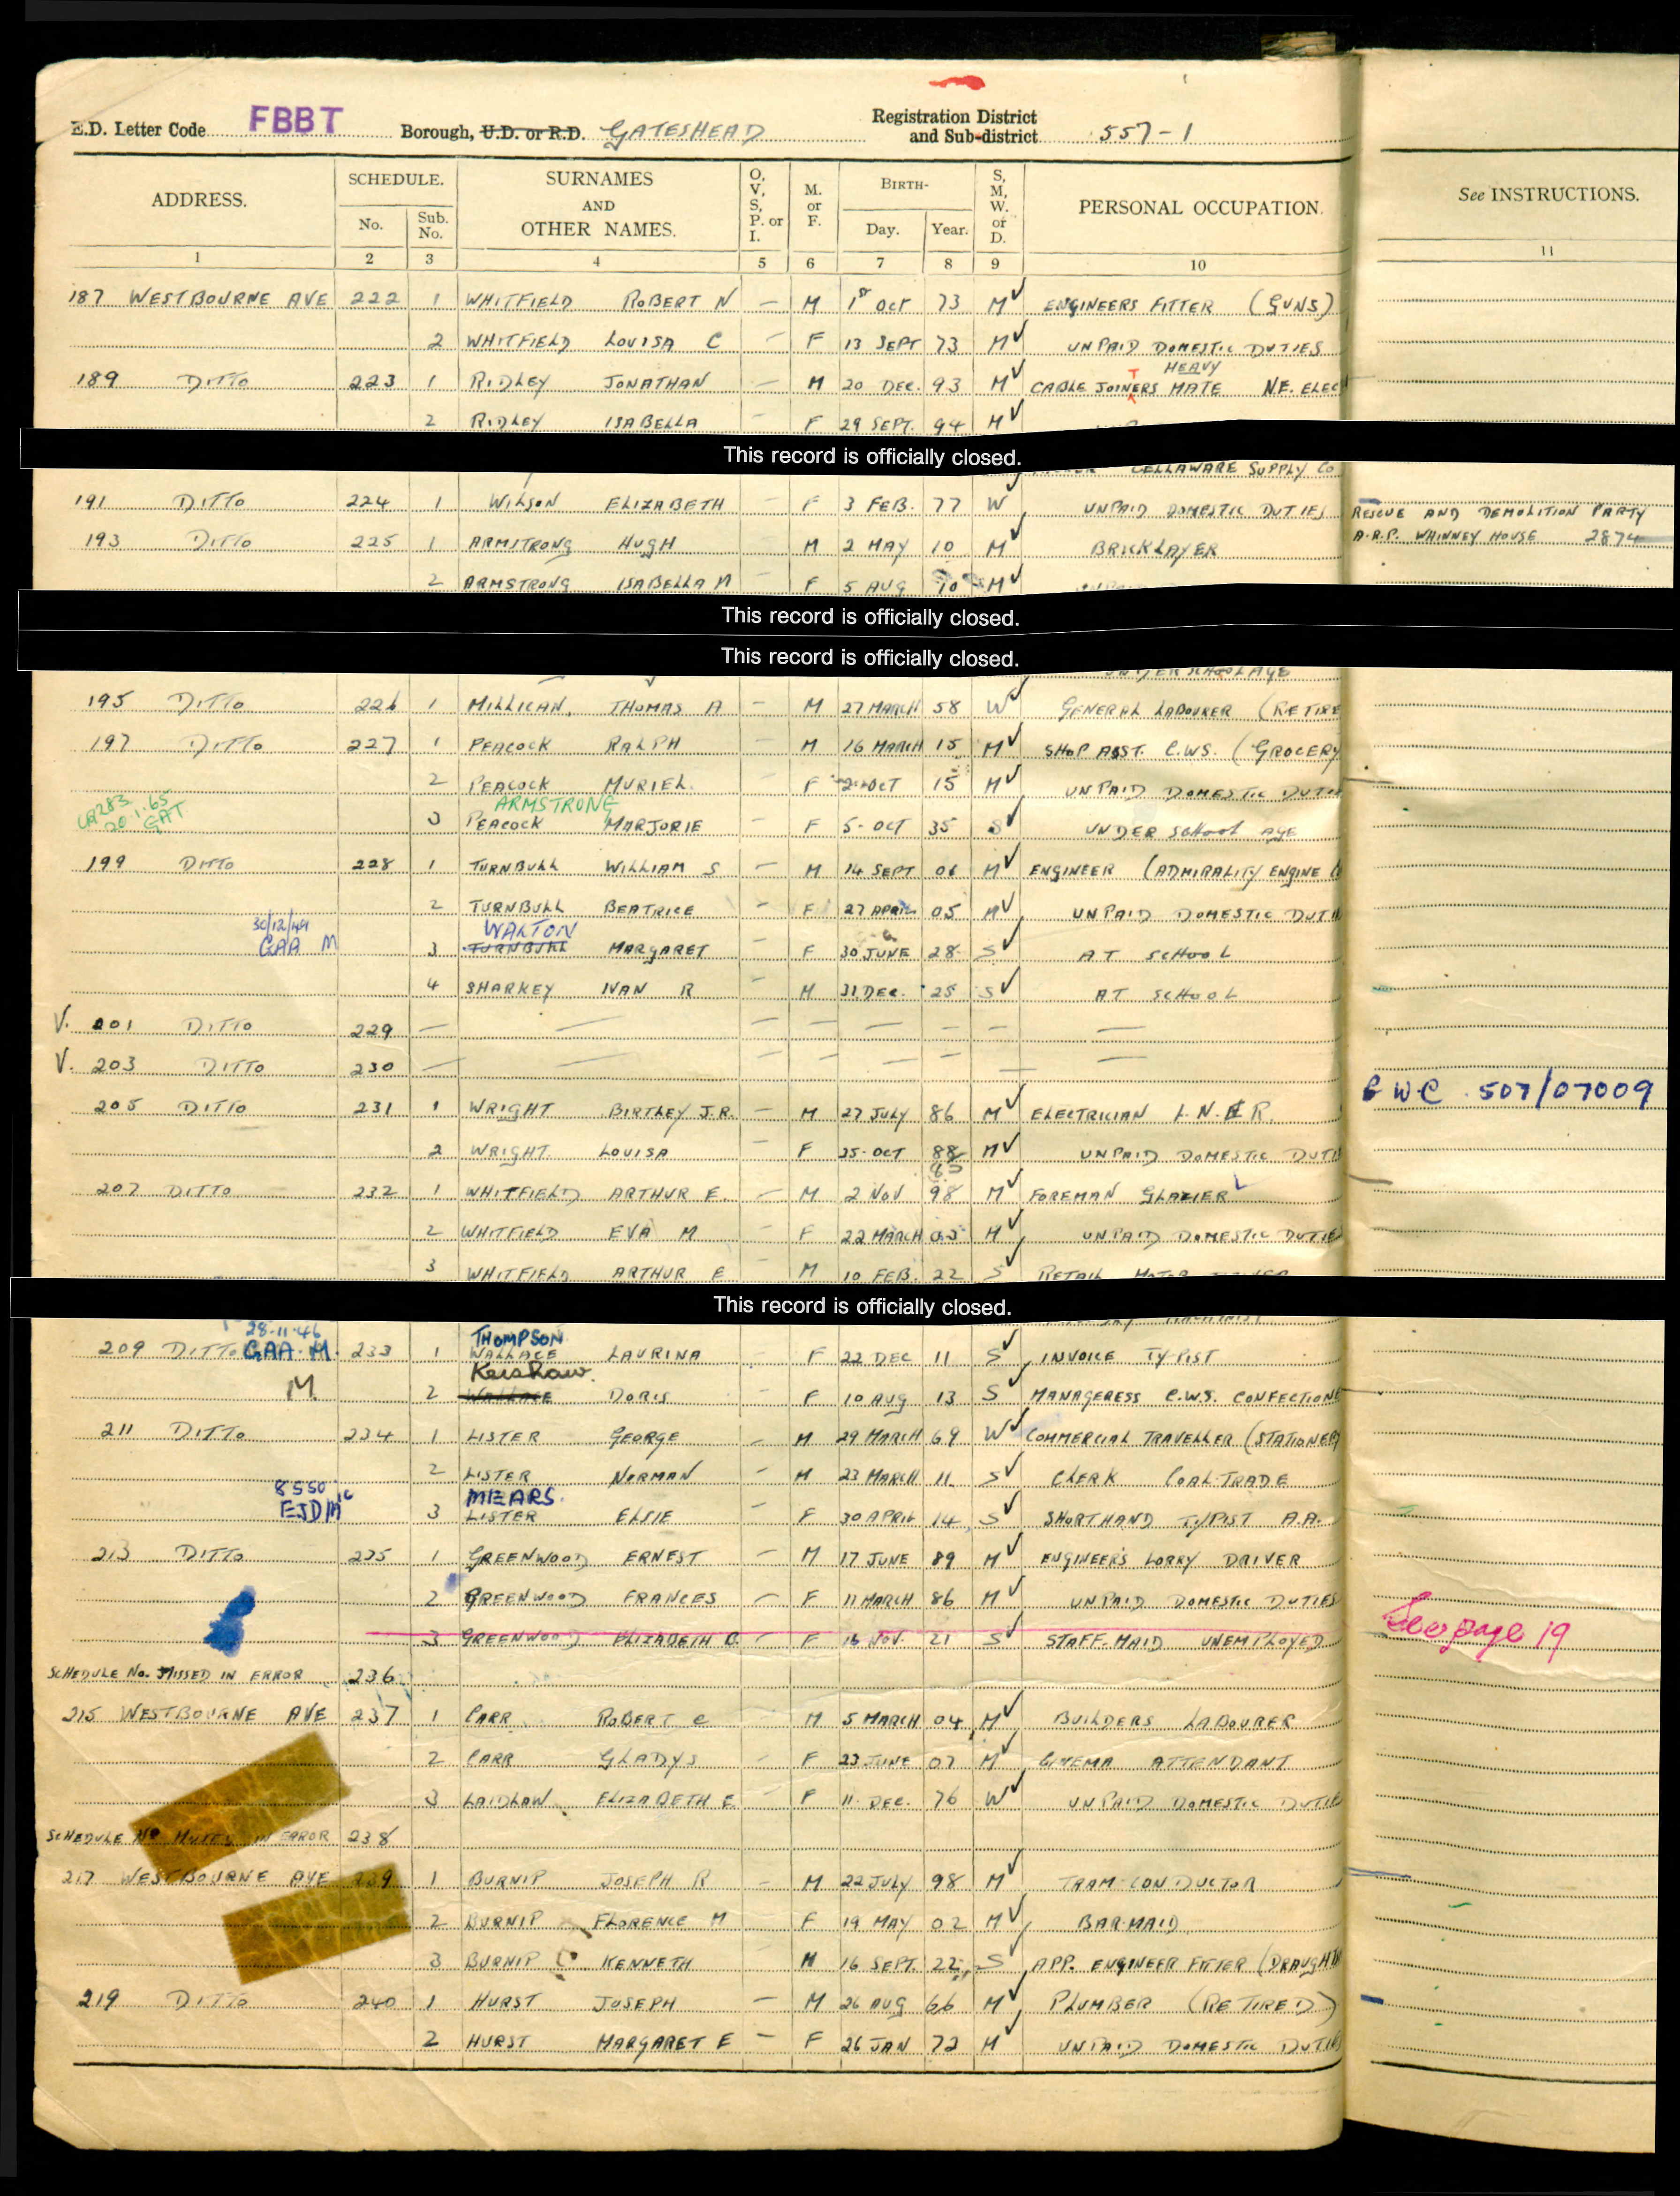 E.D. Letter Code FBBT Borough, U.D. or R.D. GATESHEAD Registration District and Sub-district 557-1
ADDRESS. SCHEDULE. No. Sub. No. SURNAMES AND OTHER NAMES. O, V, S, P. or I. M. or F. BIRTH- Day. Year. S, M, W. or D. PERSONAL OCCUPATION. See INSTRUCTIONS.
1 2 3 4 5 6 7 8 9 10 11
187 WESTBOURNE AVE 222 1 WHITFIELD ROBERT N — M 1st OCT 73 M ENGINEERS FITTER (GUNS)
2 WHITFIELD LOUISA C — F 13 SEPT 73 M UNPAID DOMESTIC DUTIES
HEAVY
189 DITTO 223 1 RIDLEY JONATHAN — M 20 DEC. 93 M CABLE JOINTERS MATE N.E. ELEC
2 RIDLEY ISABELLA — F 29 SEPT. 94 M
This record is officially closed.
CELLAWARE SUPPLY Co
191 DITTO 224 1 WILSON ELIZABETH — F 3 FEB. 77 W UNPAID DOMESTIC DUTIES RESCUE AND DEMOLITION PARTY
193 DITTO 225 1 ARMSTRONG HUGH M 2 MAY 10 M BRICKLAYER A.R.P. WHINNEY HOUSE 2874
2 ARMSTRONG ISABELLA M — F 5 AUG 10 M
This record is officially closed.
This record is officially closed.
UNDER SCHOOL AGE
195 DITTO 226 1 MILLICAN. THOMAS A — M 27 MARCH 58 W GENERAL LABOURER (RETIRE
197 DITTO 227 1 PEACOCK RALPH — M 16 MARCH 15 M SHOP ASST. C.W.S. (GROCERY
2 PEACOCK MURIEL — F 2 OCT 15 M UNPAID DOMESTIC DUTIE
LA283 20.1.65 GAT ARMSTRONG
3 PEACOCK MARJORIE — F 5 OCT 35 S UNDER SCHOOL AGE
199 DITTO 228 1 TURNBULL WILLIAM S — M 14 SEPT 06 M ENGINEER (ADMIRALITY ENGINE
2 TURNBULL BEATRICE — F 27 APRIL 05 M UNPAID DOMESTIC DUTI
30/12/49 WALTON
GAA M 3 TURNBULL MARGARET — F 30 JUNE 28 S AT SCHOOL
4 SHARKEY IVAN R — M 31 DEC. 25 S AT SCHOOL
V. 201 DITTO 229 — — — — — — — —
V. 203 DITTO 230 — — — — — — — —
205 DITTO 231 1 WRIGHT BIRTLEY J.R. — M 27 JULY 86 M ELECTRICIAN L.N.E.R. GWC 507/07009
2 WRIGHT LOUISA — F 25 OCT 88 M UNPAID DOMESTIC DUTI
207 DITTO 232 1 WHITFIELD ARTHUR E. — M 2 NOV 98 M FOREMAN GLAZIER
2 WHITFIELD EVA M — F 22 MARCH 03 M UNPAID DOMESTIC DUTIE
3 WHITFIELD ARTHUR E M 10 FEB. 22 S RETAIL MOTOR
This record is officially closed.
28.11.46 THOMPSON
209 DITTO GAA. M. 233 1 WALLACE LAURINA — F 22 DEC 11 S INVOICE TYPIST
Kershaw.
M 2 WALLACE DORIS — F 10 AUG 13 S MANAGERESS C.W.S. CONFECTIONE
211 DITTO 234 1 LISTER GEORGE — M 29 MARCH 69 W COMMERCIAL TRAVELLER (STATIONERY
2 LISTER NORMAN — M 23 MARCH 11 S CLERK COAL TRADE
8550 MEARS.
EJDM 3 LISTER ELSIE — F 30 APRIL 14 S SHORTHAND TYPIST A.A.
213 DITTO 235 1 GREENWOOD ERNEST — M 17 JUNE 89 M ENGINEERS LORRY DRIVER
2 GREENWOOD FRANCES — F 11 MARCH 86 M UNPAID DOMESTIC DUTIES
3 GREENWOOD ELIZABETH O — F 16 NOV. 21 S STAFF MAID UNEMPLOYED See page 19
SCHEDULE No. MISSED IN ERROR 236
215 WESTBOURNE AVE 237 1 CARR ROBERT C M 5 MARCH 04 M BUILDERS LABOURER
2 CARR GLADYS — F 23 JUNE 07 M CINEMA ATTENDANT
3 LAIDLAW ELIZABETH E — F 11 DEC. 76 W UNPAID DOMESTIC DUTIE
SCHEDULE No MISSED IN ERROR 238
217 WESTBOURNE AVE 239 1 BURNIP JOSEPH R — M 22 JULY 98 M TRAM CONDUCTOR
2 BURNIP FLORENCE M — F 19 MAY 02 M BARMAID
3 BURNIP KENNETH M 16 SEPT. 22 S APP. ENGINEER FITTER (DRAUGHT
219 DITTO 240 1 HURST JOSEPH — M 26 AUG 66 M PLUMBER (RETIRED)
2 HURST MARGARET E — F 26 JAN 72 M UNPAID DOMESTIC DUTIES